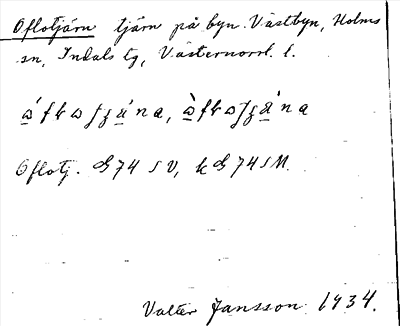 Oflotjärn tjärn på byn Västbyn, Holms
sn, Indals tg, Västernorrl. l.
Oflotj. G74 SV, k G74SM.
Valter Jansson 1934.